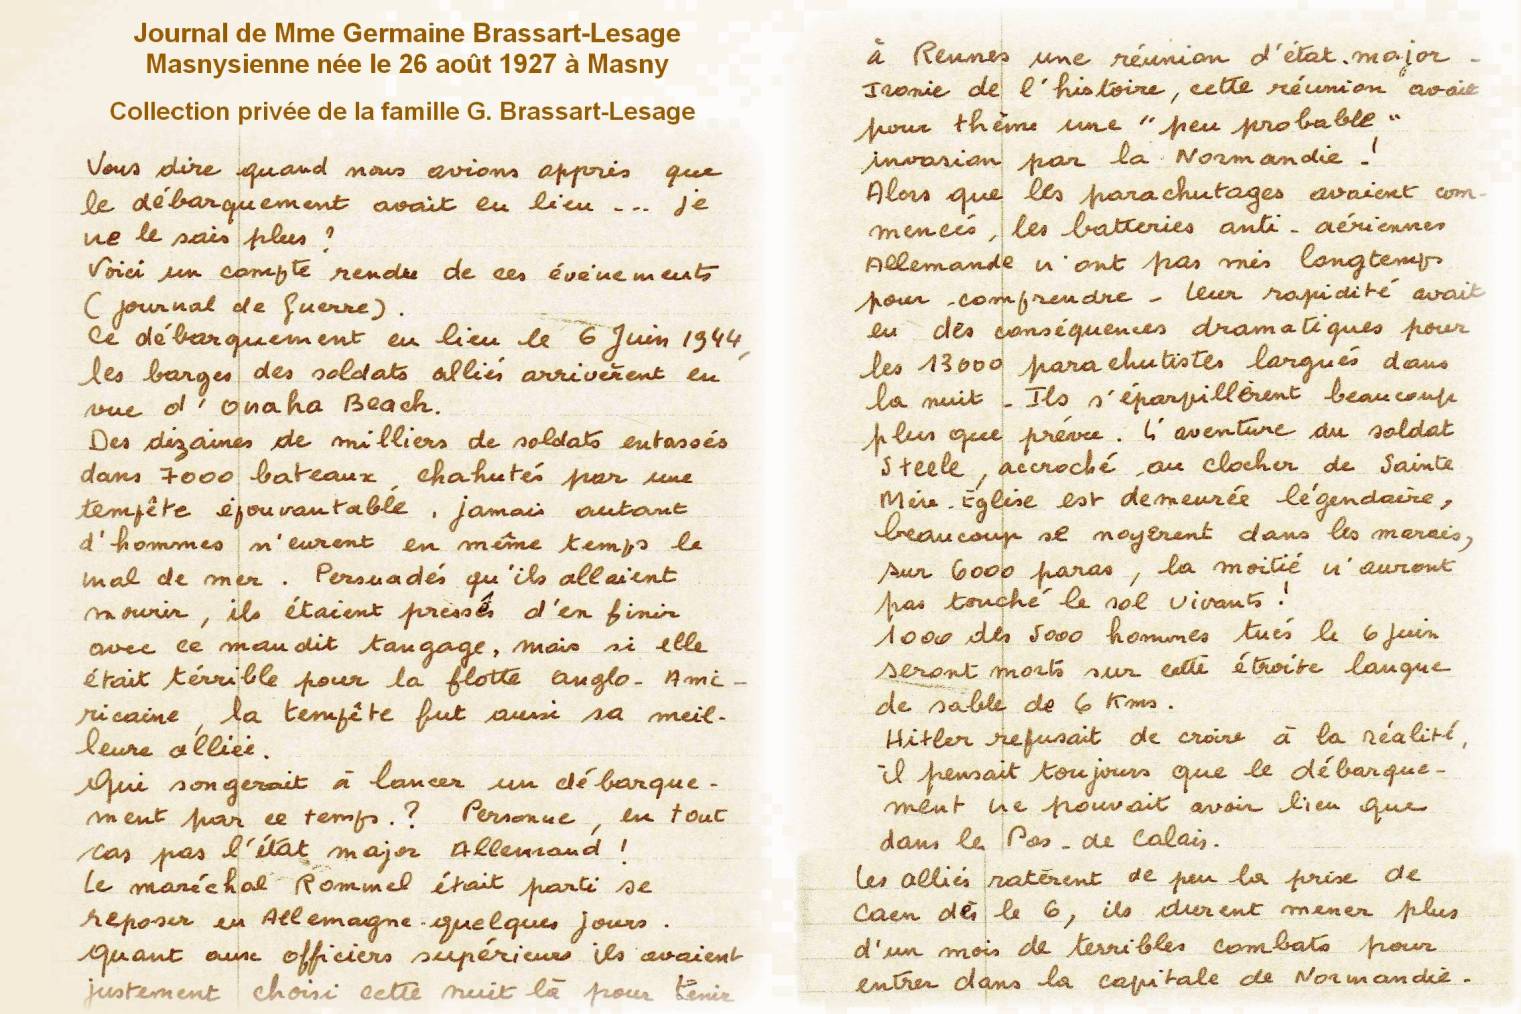 Journal de Mme Germaine Brassart-Lesage
Masnysienne née le 26 août 1927 à Masny
Collection privée de la famille G. Brassart-Lesage
Vous dire quand nous avions appris que
le débarquement avait eu lieu --- je
ne le sais plus ?
Voici un compte rendu de ces événements
( journal de Guerre) .
Ce débarquement eu lieu le 6 Juin 1944,
les barges des soldats alliés arrivèrent en
vue d' Omaha Beach.
Des dizaines de milliers de soldats entassés
dans 7000 bateaux, chahutés par une
tempête épouvantable, jamais autant
d'hommes n'eurent en même temps le
mal de mer. Persuadés qu'ils allaient
mourir, ils étaient pressés d'en finir
avec ce maudit tangage, mais si elle
était térrible pour la flotte anglo-Amé-
ricaine, la tempête fut aussi sa meil-
leure alliée.
Qui songerait à lancer un débarque-
ment par ce temps.? Personne, en tout
cas pas l'état major Allemand !
Le maréchal Rommel était parti se
reposer en Allemagne quelques jours.
Quant aux officiers supérieurs ils avaient
justement choisi cette nuit là pour tenir
à Rennes une réunion d'état.major -
Ironie de l'histoire, cette réunion avait
pour thème une "peu probable"
invasion par la Normandie -!
Alors que les parachutages avaient com-
mencés, les batteries anti-aériennes
Allemande n'ont pas mis longtemps
pour comprendre - leur rapidité avait
eu des conséquences dramatiques pour
les 13000 parachutistes largués dans
la nuit - Ils s'éparpillèrent beaucoup
plus que prévu. L'aventure du soldat
Steele, accroché au clocher de Sainte
Mère-Eglise est demeurée légendaire,
beaucoup se noyèrent dans les marais,
sur 6000 paras, la moitié n'auront
pas touché le sol vivants !
1000 des 5000 hommes tués le 6 juin
seront morts sur cette étroite langue
de sable de 6 Kms.
Hitler refusait de croire à la réalité,
il pensait toujours que le débarque-
ment ne pouvait avoir lieu que
dans le Pas-de Calais.
Les alliés ratèrent de peu la prise de
Caen dès le 6, ils durent mener plus
d'un mois de terribles combats pour
entrer dans la capitale de Normandie.